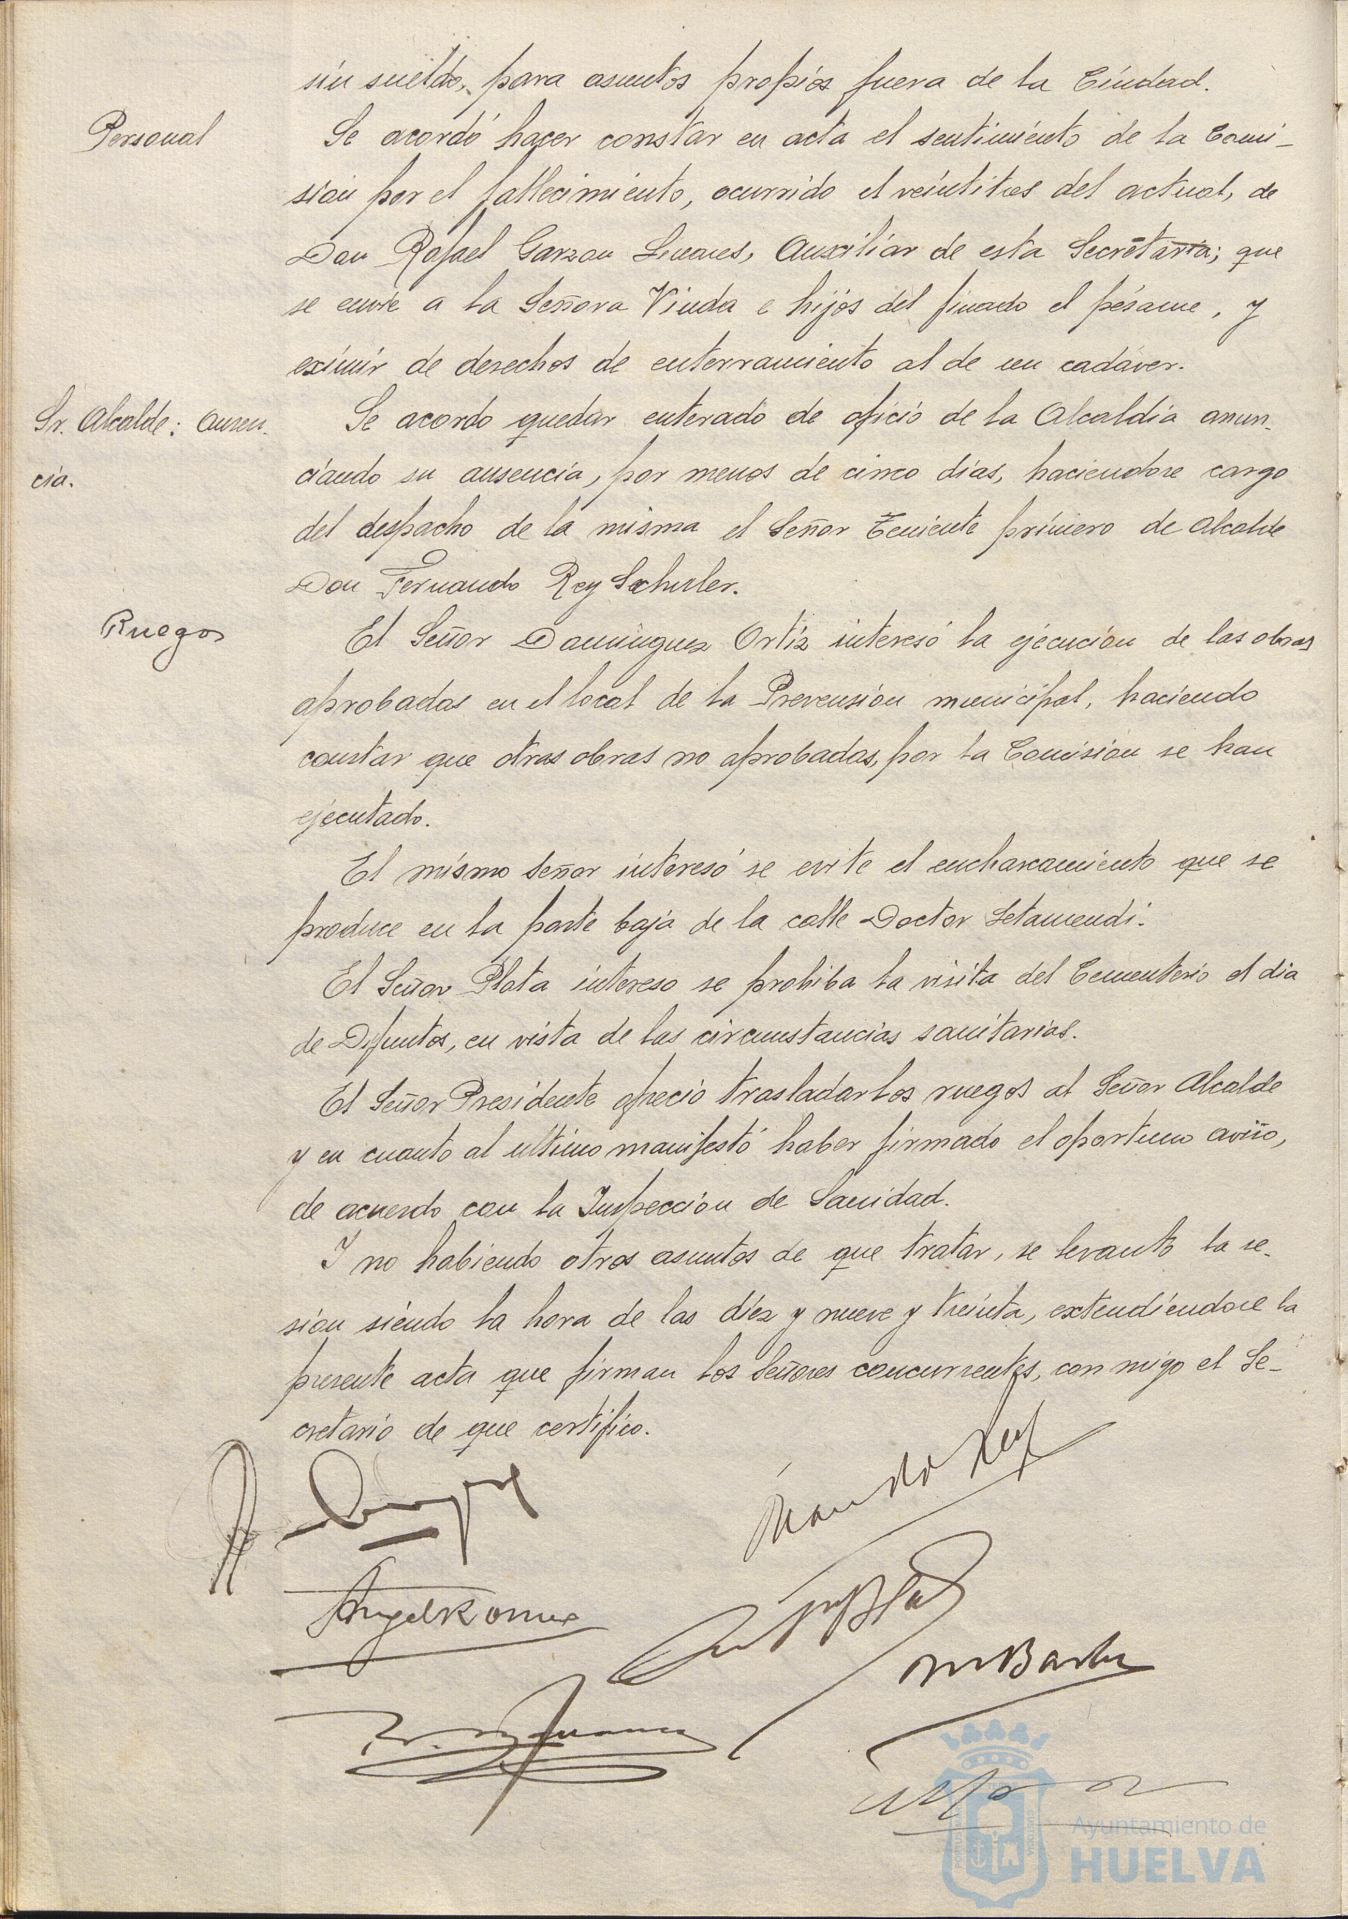 sin sueldo, para asuntos propios fuera de la Ciudad.
Personal
Se acordó hacer constar en acta el sentimiento de la Comi-
sion por el fallecimiento, ocurrido el veintitres del actual, de
Don Rafael Garzon Linares, Auxiliar de esta Secretaria; que
se envie a la Señora Viuda e hijos del finado el pésame, y
eximir de derechos de enterramiento al de un cadáver.
Sr. Alcalde: Ausen-
cia.
Se acordo quedar enterado de oficio de la Alcaldia anun-
ciando su ausencia, por menos de cinco dias, haciendose cargo
del despacho de la misma el Señor Teniente primero de Alcalde
Don Fernando Rey Schuler.
Ruegos
El Señor Dominguez Ortiz interesó la ejecucion de las obras
aprobadas en el local de la Prevension municipal, haciendo
constar que otras obras no aprobadas, por la Comision se han
ejecutado.
El mismo Señor interesó se evite el encharcamiento que se
produce en la parte baja de la calle Doctor Letamendi.
El Señor Plata intereso se prohiba la visita del Cementerio el dia
de Difuntos, en vista de las circunstancias sanitarias.
El Señor Presidente ofrecio trasladar los ruegos al Señor Alcalde
y en cuanto al ultimo manifestó haber firmado el oportuno aviso,
de acuerdo con la Inspeccion de Sanidad.
Y no habiendo otros asuntos de que tratar, se levanto la se-
sion siendo la hora de las diez y nueve y treinta, extendiendose la
presente acta que firman los Señores concurrentes, con migo el Se-
cretario de que certifico.
Ayuntamiento de
HUELVA